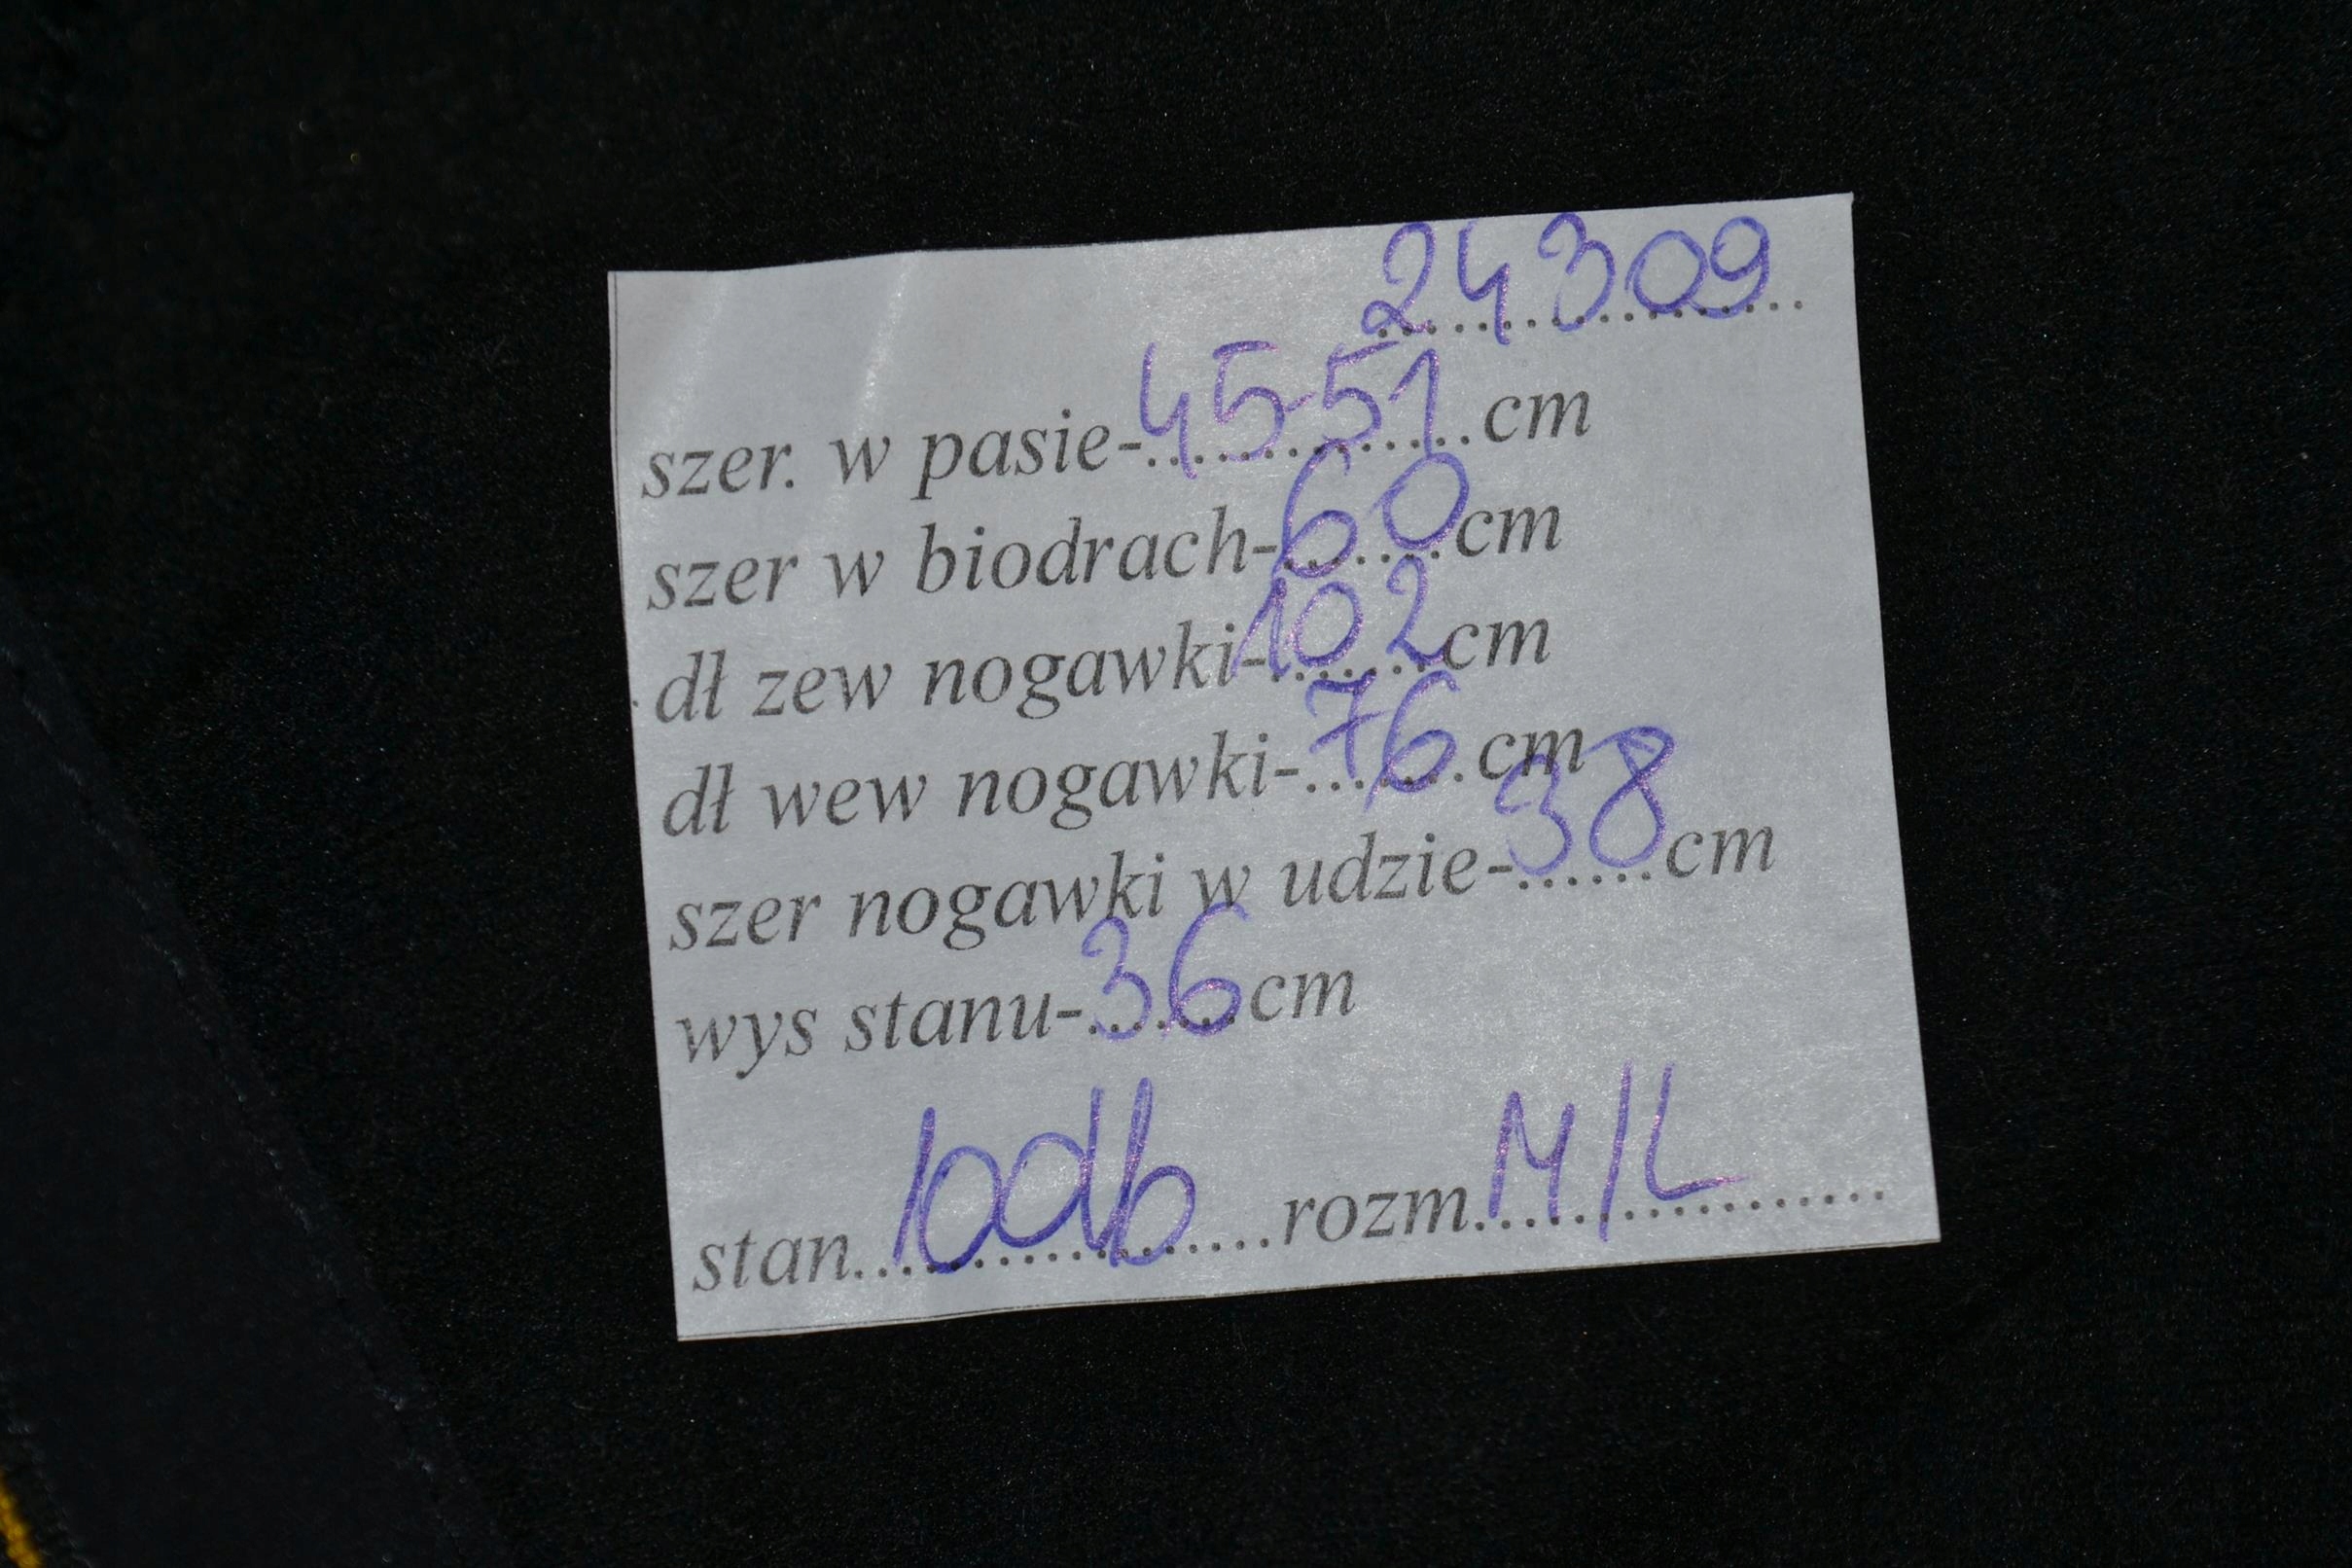 24309
szer. w pasie-45-51cm
szer w biodrach-60cm
dł zew nogawki-102cm
dł wew nogawki-76cm
szer nogawki w udzie-38cm
wys stanu-36cm
stan bdb rozm M/L